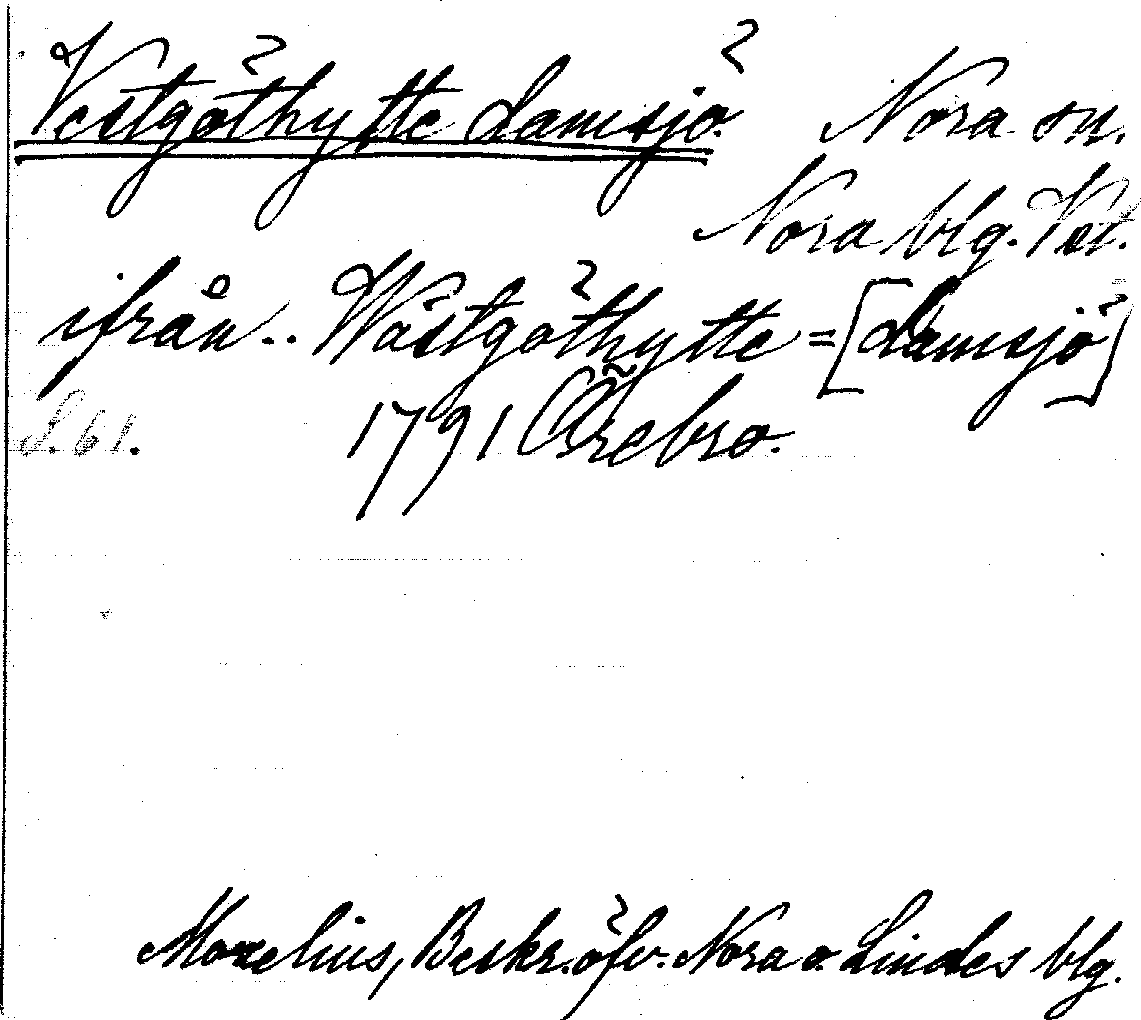 Vestgöthytte Damsjö. Nora sn.
Nora blg. Vstm.
ifrån.. Wästgöthytte=[Damsjö]
S. 61. 1791 Örebro.
Moxelius, Beskr. öfv. Nora o. Lindes blg.